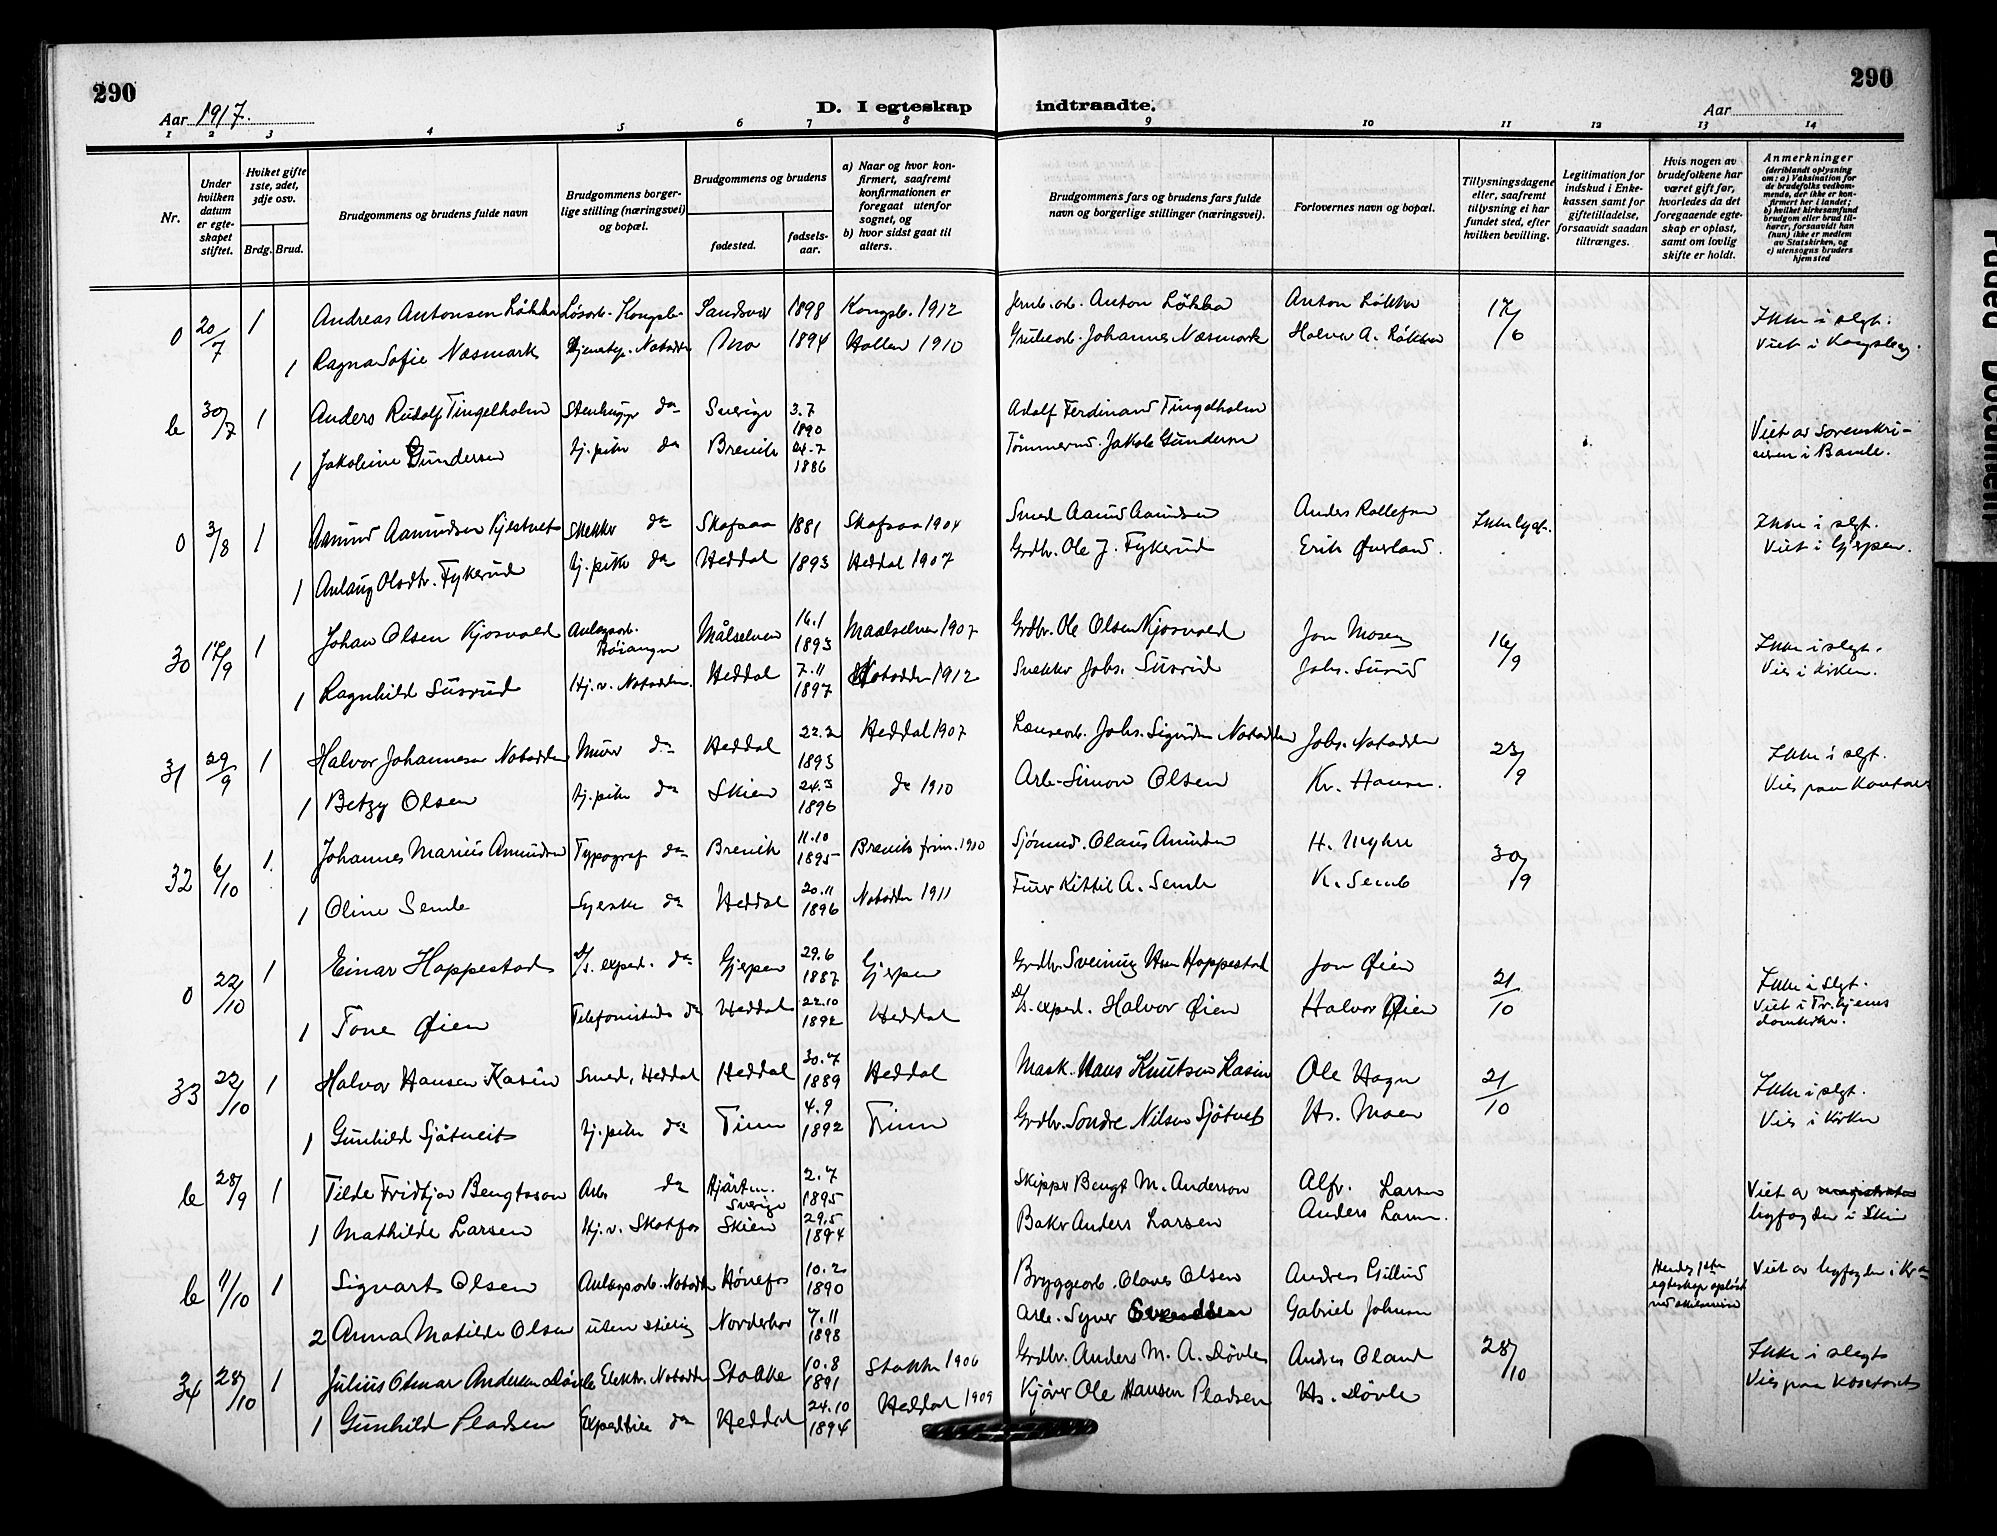 290
290
Aar 1917.
D. I egteskap
indtraadte.
Aar
1 2 3 4 5 6 7 8 9 10 11 12 13 14
Nr.
Under hvilken datum er egteskapet stiftet.
Hvilket gifte 1ste, 2det, 3dje osv.
Brdg. Brud.
Brudgommens og brudens fulde navn
Brudgommens borgerlige stilling (næringsvei) og bopæl.
Brudgommens og brudens
fødested.
fødselsaar.
a) Naar og hvor konfirmert, saafremt konfirmationen er foregaat utenfor sognet, og
b) hvor sidst gaat til alters.
Brudgommens fars og brudens fars fulde navn og borgerlige stillinger (næringsvei).
Forlovernes navn og bopæl.
Tillysningsdagene eller, saafremt tillysning ei har fundet sted, efter hvilken bevilling.
Legitimation for indskud i Enkekassen samt for giftetilladelse, forsaavidt saadan tiltrænges.
Hvis nogen av brudefolkene har været gift før, hvorledes da det foregaaende egteskap er opløst, samt om lovlig skifte er holdt.
Anmerkninger (deriblandt oplysning om: a) Vaksination for de brudefolks vedkommende, der ikke er konfirmert her i landet; b) hvilket kirkesamfund brudgom eller brud tilhører, forsaavidt han (hun) ikke er medlem av Statskirken, og c) utensogns bruders hjemsted
0 20/7 1 Andreas Antonsen Løkka Løsarb. Kongsb. Sandsvær 1898 Kongsb. 1912 Jernb.arb. Anton Løkka Anton Løkka 17/6 Ikke i slegt.
1 Ragna Sofie Næsmark Tjenestep. Notodden Mo 1894 Hollen 1910 Grubearb. Johannes Næsmark Halvor A. Løkka Viet i Kongsberg.
b 30/7 1 Anders Rudolf Tingelholm Stenhugger do Sverige 3.7 1890 Adolf Ferdinand Tingelholm
1 Jakobine Gundersen tj.pike do Brevik 24.7 1886 Tømmermd. Jakob Gundersen Viet av Sorenskriveren i Bamle.
0 3/8 1 Aamund Aamundsen Kjestveit Snekker do Skafsaa 1881 Skafsaa 1904 Smed Aamund Aamundsen Anders Rollefsen Ikke lyst. Ikke i slegt.
1 Anlaug Olsdtr. Tykerud tj.pike do Heddal 1893 Heddal 1907 Grdbr. Ole J. Tykerud Erik Øverland. Viet i Gjerpen.
30 17/9 1 Johan Olsen Kjosvold Anlægsarb. Høianger Målselven 16.1 1893 Maalselven 1907 Grdbr. Ole Olsen Kjosvold Jon Mosen 16/9 Ikke i slegt.
1 Ragnhild Susrud Hj. v. Notodden. Heddal 7.11 1897 Notodden 1912 Snekker Johs. Susrud Johs. Susrud Vies i kirken.
31 29/9 1 Halvor Johannesen Notodden Murer do Heddal 22.2 1893 Heddal 1907 Johs. Sigurdsen Notodden Johs. Notodden 23/9 Ikke i slegt.
1 Betzy Olsen tj.pike do Skien 24.3 1896 do 1910 Arb. Simon Olsen Kr. Hansen. Vies paa Kontoret
32 6/10 1. Johannes Marius Amundsen Typograf do Brevik 11.10 1895 Brevik 1910 Sjømand. Olaus Amundsen H. Myhre 30/9
1 Oline Semb Syerske do Heddal 20.11 1896 Notodden 1911 Kittil A. Semb K. Semb
0 22/10 1 Einar Hoppestad D/s. exped. do Gjerpen 29.6 1887 Gjerpen Grdbr. Sveinung Hoppestad Jon Øien 21/10 Ikke i slegt.
1 Tone Øien Telefonistinde do Heddal 22.10 1892 Heddal D/s. exped. Halvor Øien Halvor Øien Viet i Tr.hjems domkirke.
33 22/10 1 Halvor Hansen Kasin Smed, Heddal Heddal 30.7 1889 Heddal Mask. Hans Knutsen Kasin Ole Hagen 21/10 Ikke i slegt.
1 Gunhild Sjøtveit tj.pike do Tinn 4.9 1892 Tinn Grdbr. Sondre Nilsen Sjøtveit Hs. Moen Vies i Kirken
b 28/9 1 Tilde Fridtjov Bengtsson Arb. do Sverige 2.7 1895 Skipper Bengt M. Anderson Alfr. Larsen
1 Mathilde Larsen Hj. v. Skotfos Skien 29.5 1894 Baker Anders Larsen Anders Larsen. Viet av byfogden i Skien
b 11/10 1 Sigvart Olsen Anlægsarb. Notodden Hønefos 10.2 1890 Bryggearb. Olaves Olsen Andreas Hendes 1ste egteskap opløst ved skilsmisse Viet av byfogden i Kr.a
2 Anna Matilde Olsen uten stilling Norderhov 7.11 1898 Arb. Syver Svendsen Gabriel Johnsen
34 28/10 1 Julius Otmar Andersen Døvle Elektr. Notodden Stokke 10.8 1891 Stokke 1906 Grdbr. Anders M. A. Døvle Andres Oland 28/10 Ikke i slegt
1 Gunhild Pladsen Expeditrice do Heddal 24.10 1894 Heddal 1909 Kjører Ole Hansen Pladsen Hs. Døvle Vies paa Kontoret
Faded Document